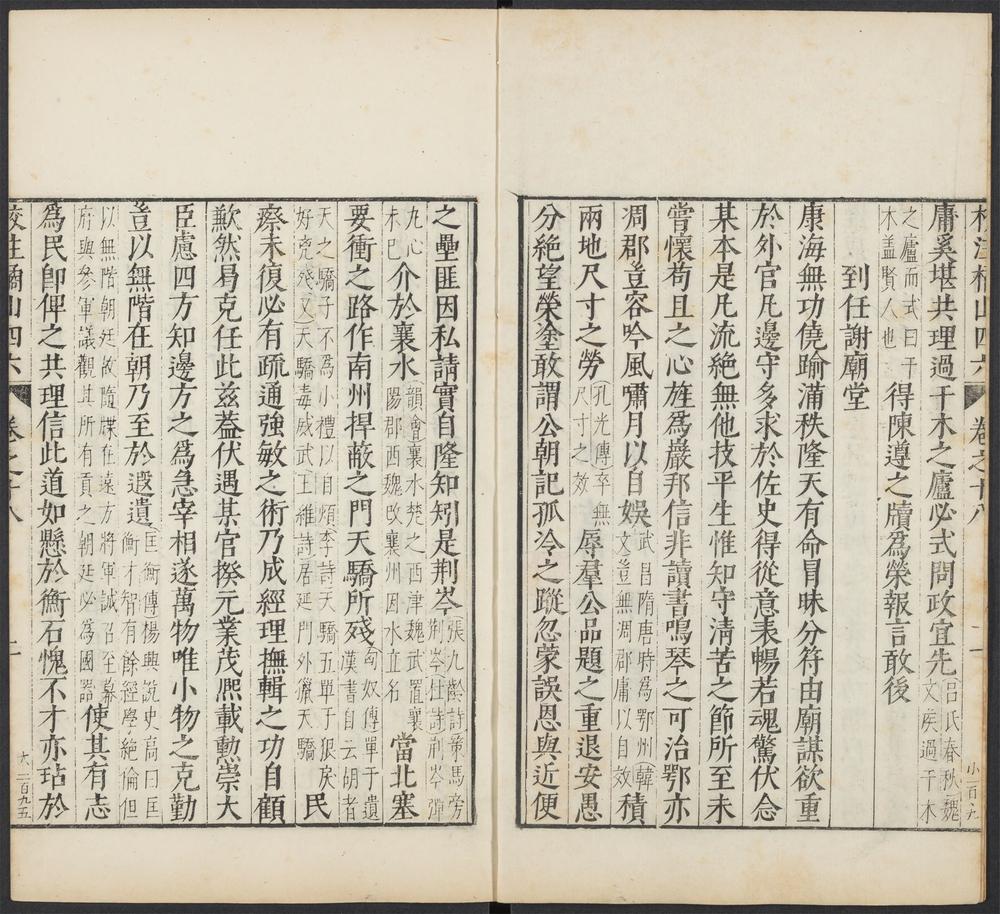 庸奚堪共理過干木之廬必式問政宜先呂氏春秋魏文侯過干木
之廬而式曰干木蓋賢人也得陳遵之牘為榮報言敢後
到任謝廟堂
康海無功僥踰滿秩隆天有命冒昧分符由廟謀欲重
於外官凡邊守多求於佐史得從意表暢若魂驚伏念
某本是凡流絕無他技平生惟知守清苦之節所至未
嘗懷苟且之心旌為嚴邦信非讀書鳴琴之可治鄂亦
凋郡豈容吟風嘯月以自娛武昌隋唐時為鄂州韓文豈無凋郡庸以自效積
兩地尺寸之勞孔光傳卒無尺寸之效辱羣公品題之重退安愚
分絕望榮塗敢謂公朝記孤冷之蹤忽蒙誤恩與近便
之壘匪因私請實自隆知矧是荆岑張九齡詩策馬旁荆岑杜詩荆岑彈
丸心未已介於襄水韻會襄水楚之西津魏武置襄陽郡西魏改襄州因水立名當北塞
要衝之路作南州捍蔽之門天驕所殘匈奴傳單于遺漢書自云胡者
天之驕子不為小禮以自煩李詩天驕五單于狼戾好兇殘又天驕毒威武王維詩居延門外獵天驕民
瘵未復必有疏通強敏之術乃成經理撫輯之功自顧
歉然曷克任此茲蓋伏遇某官揆元業茂熙載勳崇大
臣慮四方知邊方之為急宰相遂萬物唯小物之克勤
豈以無階在朝乃至於遐遺匡衡傳楊興說史高曰匡衡才智有餘經學絕倫但
以無階朝廷故隨牒在遠方將軍誠召至幕府與參軍議觀其所有貢之朝廷必為國器使其有志
為民卽俾之共理信此道如懸於衡石愧不才亦玷於
卷之十八
二
小一百九
卷之十八
二
大二百九五